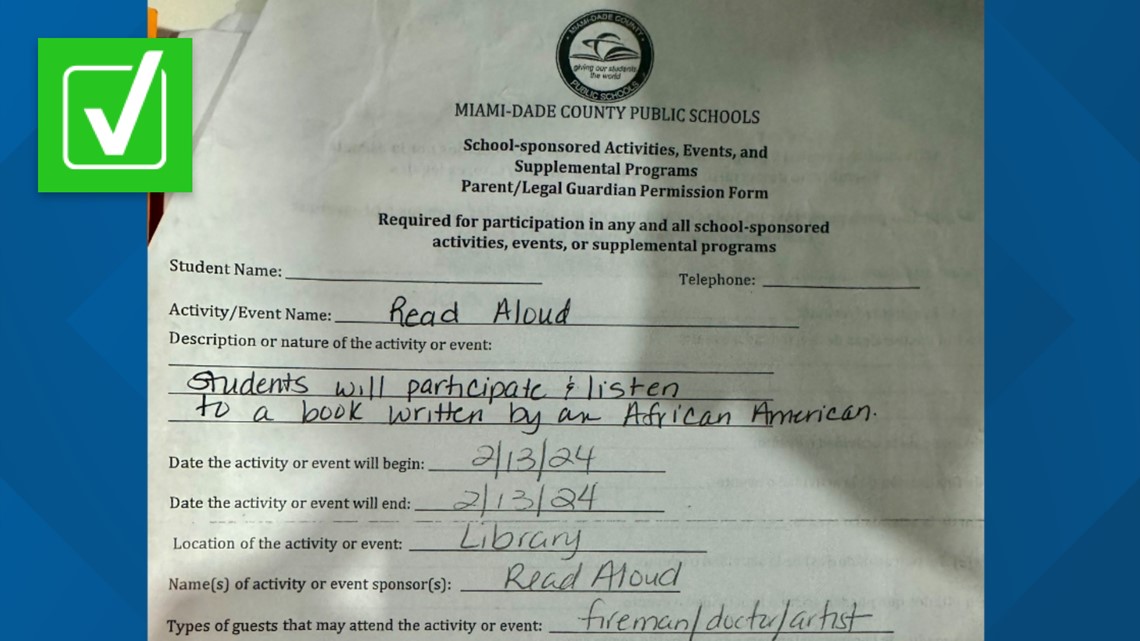 MIAMI-DADE COUNTY
giving our students
the world
PUBLIC SCHOOLS
MIAMI-DADE COUNTY PUBLIC SCHOOLS
School-sponsored Activities, Events, and
Supplemental Programs
Parent/Legal Guardian Permission Form
Required for participation in any and all school-sponsored
activities, events, or supplemental programs
Student Name: Telephone:
Activity/Event Name: Read Aloud
Description or nature of the activity or event:
Students will participate & listen
to a book written by an African American.
Date the activity or event will begin: 2/13/24
Date the activity or event will end: 2/13/24
Location of the activity or event: Library
Name(s) of activity or event sponsor(s): Read Aloud
Types of guests that may attend the activity or event: fireman/doctor/artist